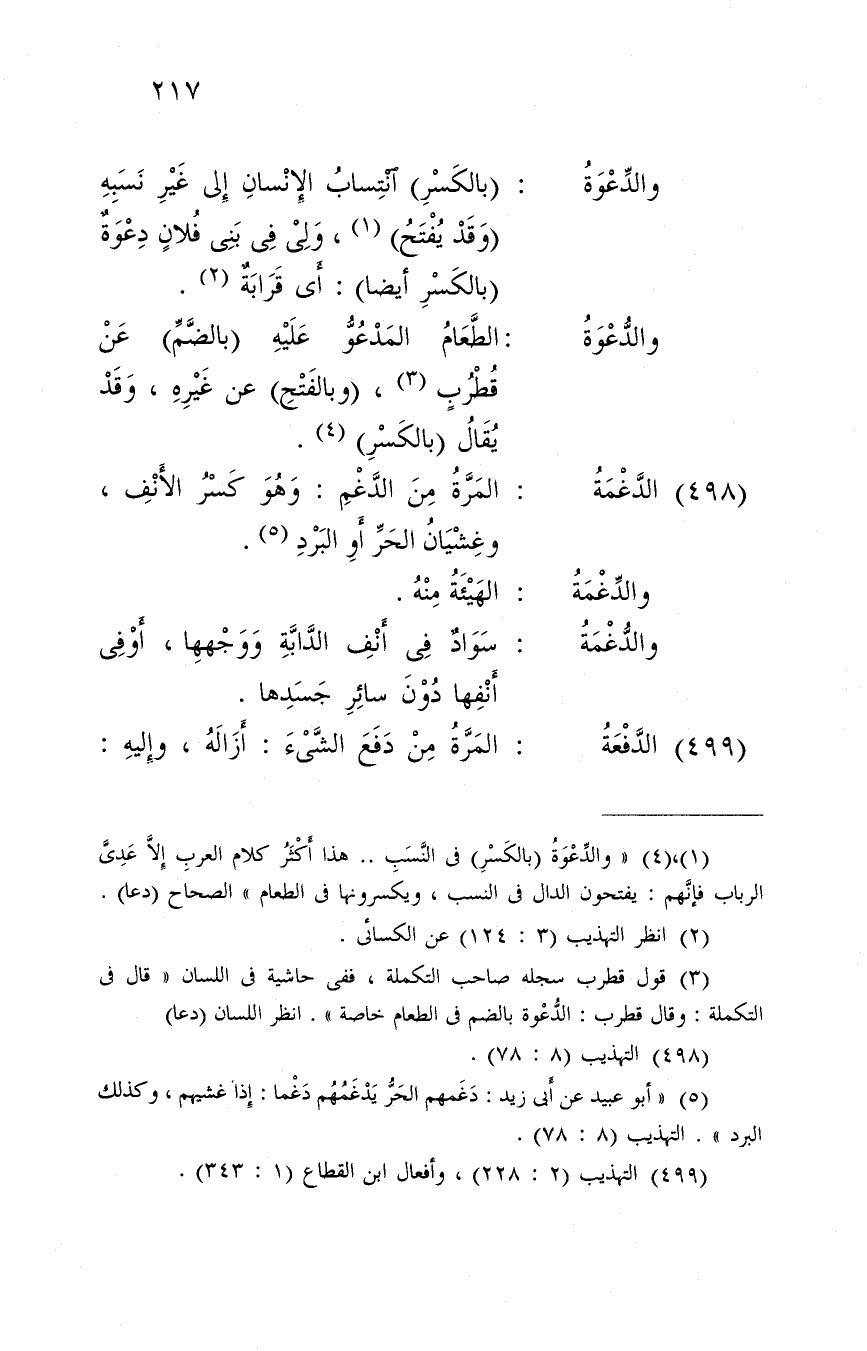 ٢١٧
والدِّعْوَةُ : (بالكَسْرِ) ٱنْتِسابُ الإِنْسانِ إِلى غَيْرِ نَسَبِهِ
(وَقَدْ يُفْتَحُ) (١) ، وَلِىْ فِى بَنِى فُلانٍ دِعْوَةٌ
(بالكَسْرِ أيضا) : أَى قَرَابَةٌ (٢) .
والدُّعْوَةُ : الطَّعَامُ المَدْعُوُّ عَلَيْهِ (بالضَّمِّ) عَنْ
قُطْرُبٍ (٣) ، (وبالفَتْحِ) عن غَيْرِهِ ، وَقَدْ
يُقَالُ (بالكَسْرِ) (٤) .
(٤٩٨) الدَّغْمَةُ : المَرَّةُ مِنَ الدَّغْمِ : وَهُوَ كَسْرُ الأَنْفِ ،
وغِشْيَانُ الحَرِّ أَوِ البَرْدِ (٥) .
والدِّغْمَةُ : الهَيْئَةُ مِنْهُ .
والدُّغْمَةُ : سَوَادٌ فِى أَنْفِ الدَّابَّةِ وَوَجْهِها ، أَوْفِى
أَنْفِها دُوْنَ سائِرِ جَسَدِها .
(٤٩٩) الدَّفْعَةُ : المَرَّةُ مِنْ دَفَعَ الشَّىْءَ : أَزَالَهُ ، وإِليهِ :
(١)،(٤) « والدِّعْوَةُ (بالكَسْرِ) فى النَّسَبِ .. هذا أَكْثَرُ كلام العربِ إلاَّ عَدِىَّ
الرباب فإنَّهم : يفتحون الدال فى النسب ، ويكسرونها فى الطعام » الصحاح (دعا) .
(٢) انظر التهذيب (٣ : ١٢٤) عن الكسائى .
(٣) قول قطرب سجله صاحب التكملة ، ففى حاشية فى اللسان « قال فى
التكملة : وقال قطرب : الدُّعْوة بالضم فى الطعام خاصة » . انظر اللسان (دعا)
(٤٩٨) التهذيب (٨ : ٧٨) .
(٥) « أبو عبيد عن أبى زيد : دَغَمهم الحَرُّ يَدْغَمُهُم دَغْما : إذا غشيهم ، وكذلك
البرد » . التهذيب (٨ : ٧٨) .
(٤٩٩) التهذيب (٢ : ٢٢٨) ، وأفعال ابن القطاع (١ : ٣٤٣) .